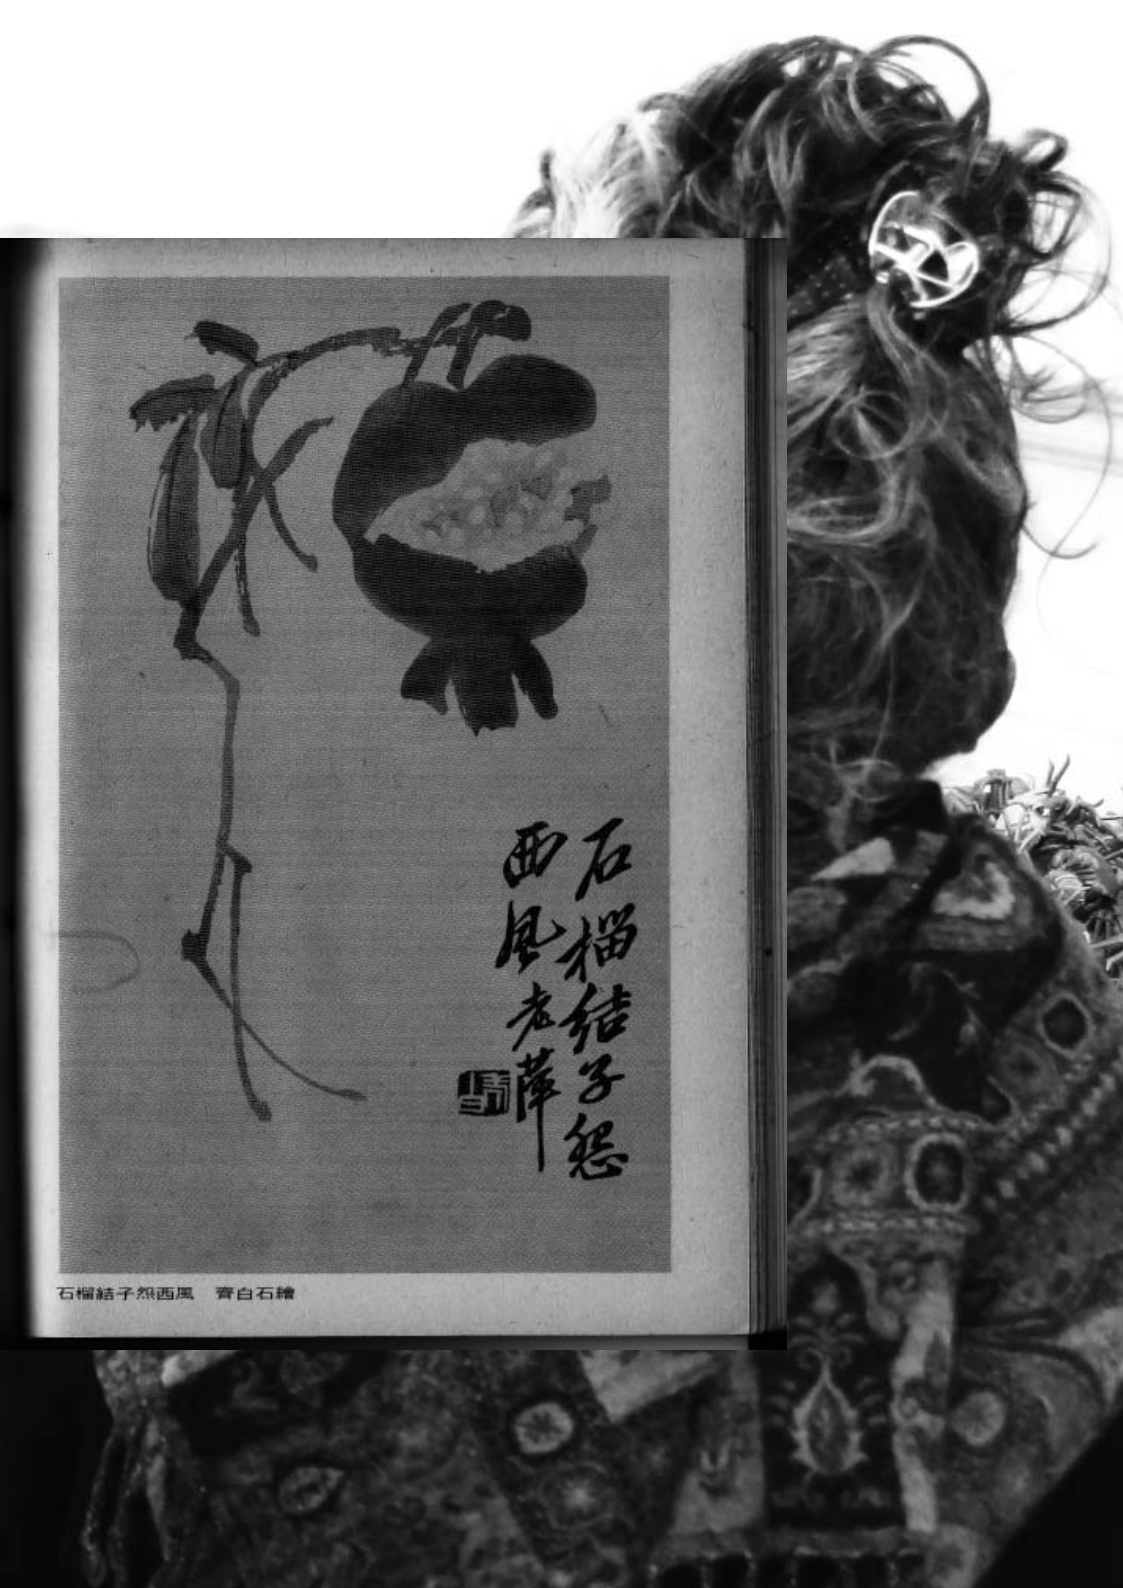 石榴結子怨
西風老萍
石榴結子怨西風　齊白石繪